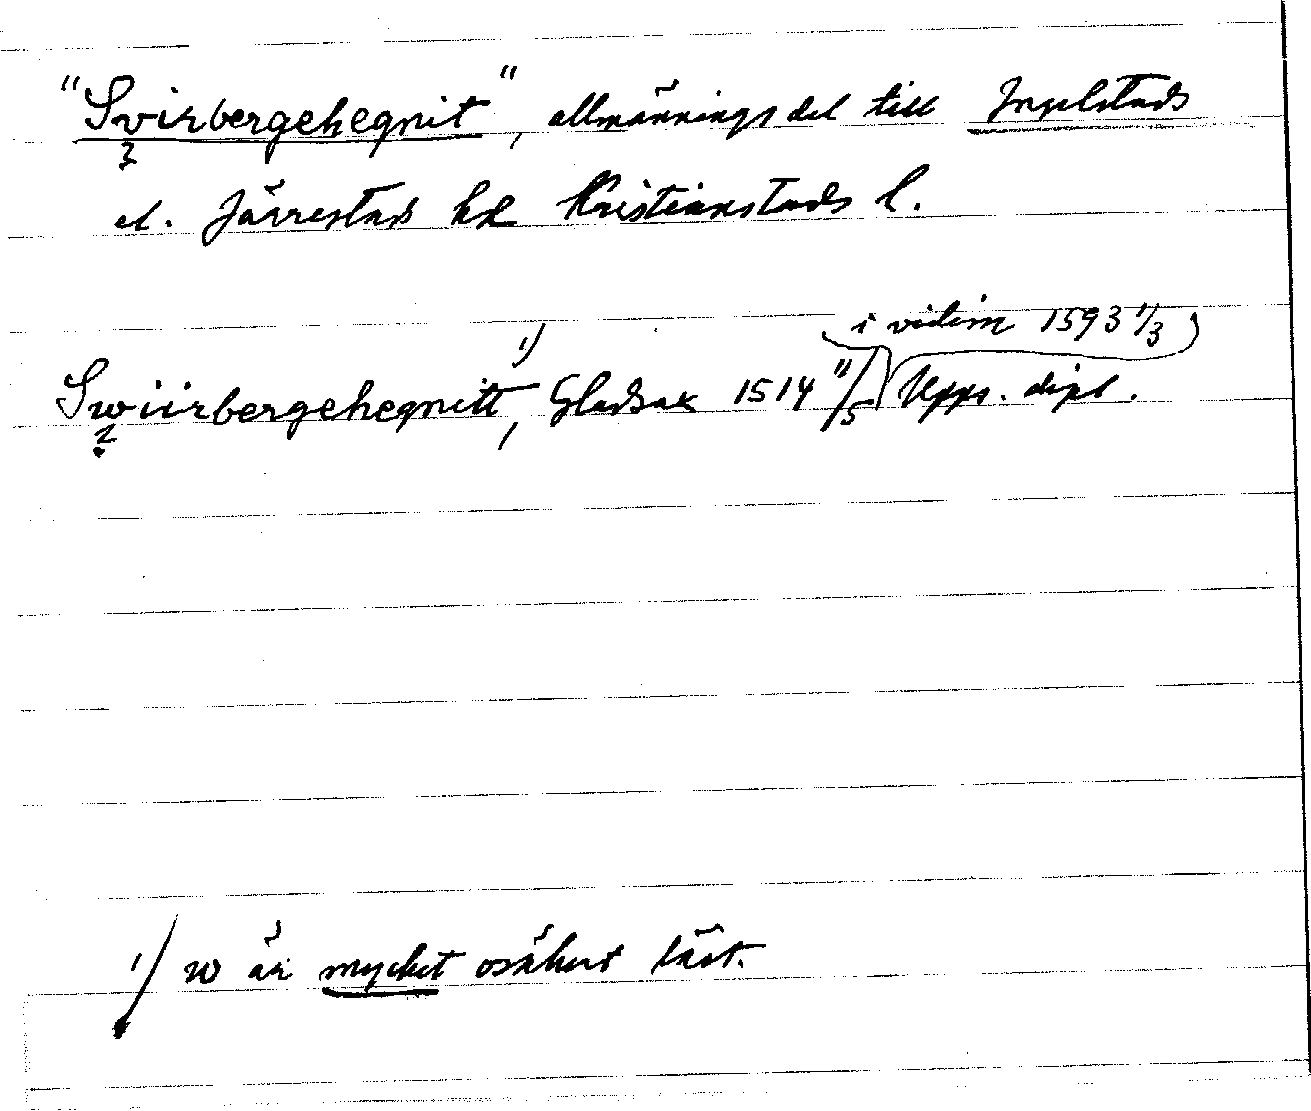 "Svirbergehegnit", allmänningsdel till Ingelstads
?
el. Järrestads hd Kristianstads l.
i vidim 1593 1/3
Swiirbergehegnitt 1), Gladsax 1514 11/5 (Upps. dipl.
?
1) w är mycket osäkert läst.